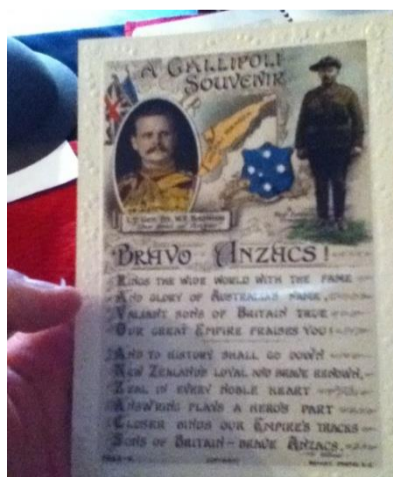 A GALLIPOLI
SOUVENIR
BRAVO ANZACS!
RINGS THE WIDE WORLD WITH THE FAME
AND GLORY OF AUSTRALIAN NAME,
VALIANT SONS OF BRITAIN TRUE
OUR GREAT EMPIRE PRAISES YOU!
AND TO HISTORY SHALL GO DOWN
NEW ZEALAND'S LOYAL AND BRAVE RENOWN,
ZEAL IN EVERY NOBLE HEART
ANSWRING PLAYS A HERO'S PART
CLOSER BINDS OUR EMPIRE'S TRACKS
SONS OF BRITAIN - BRAVE ANZACS.
COPYRIGHT